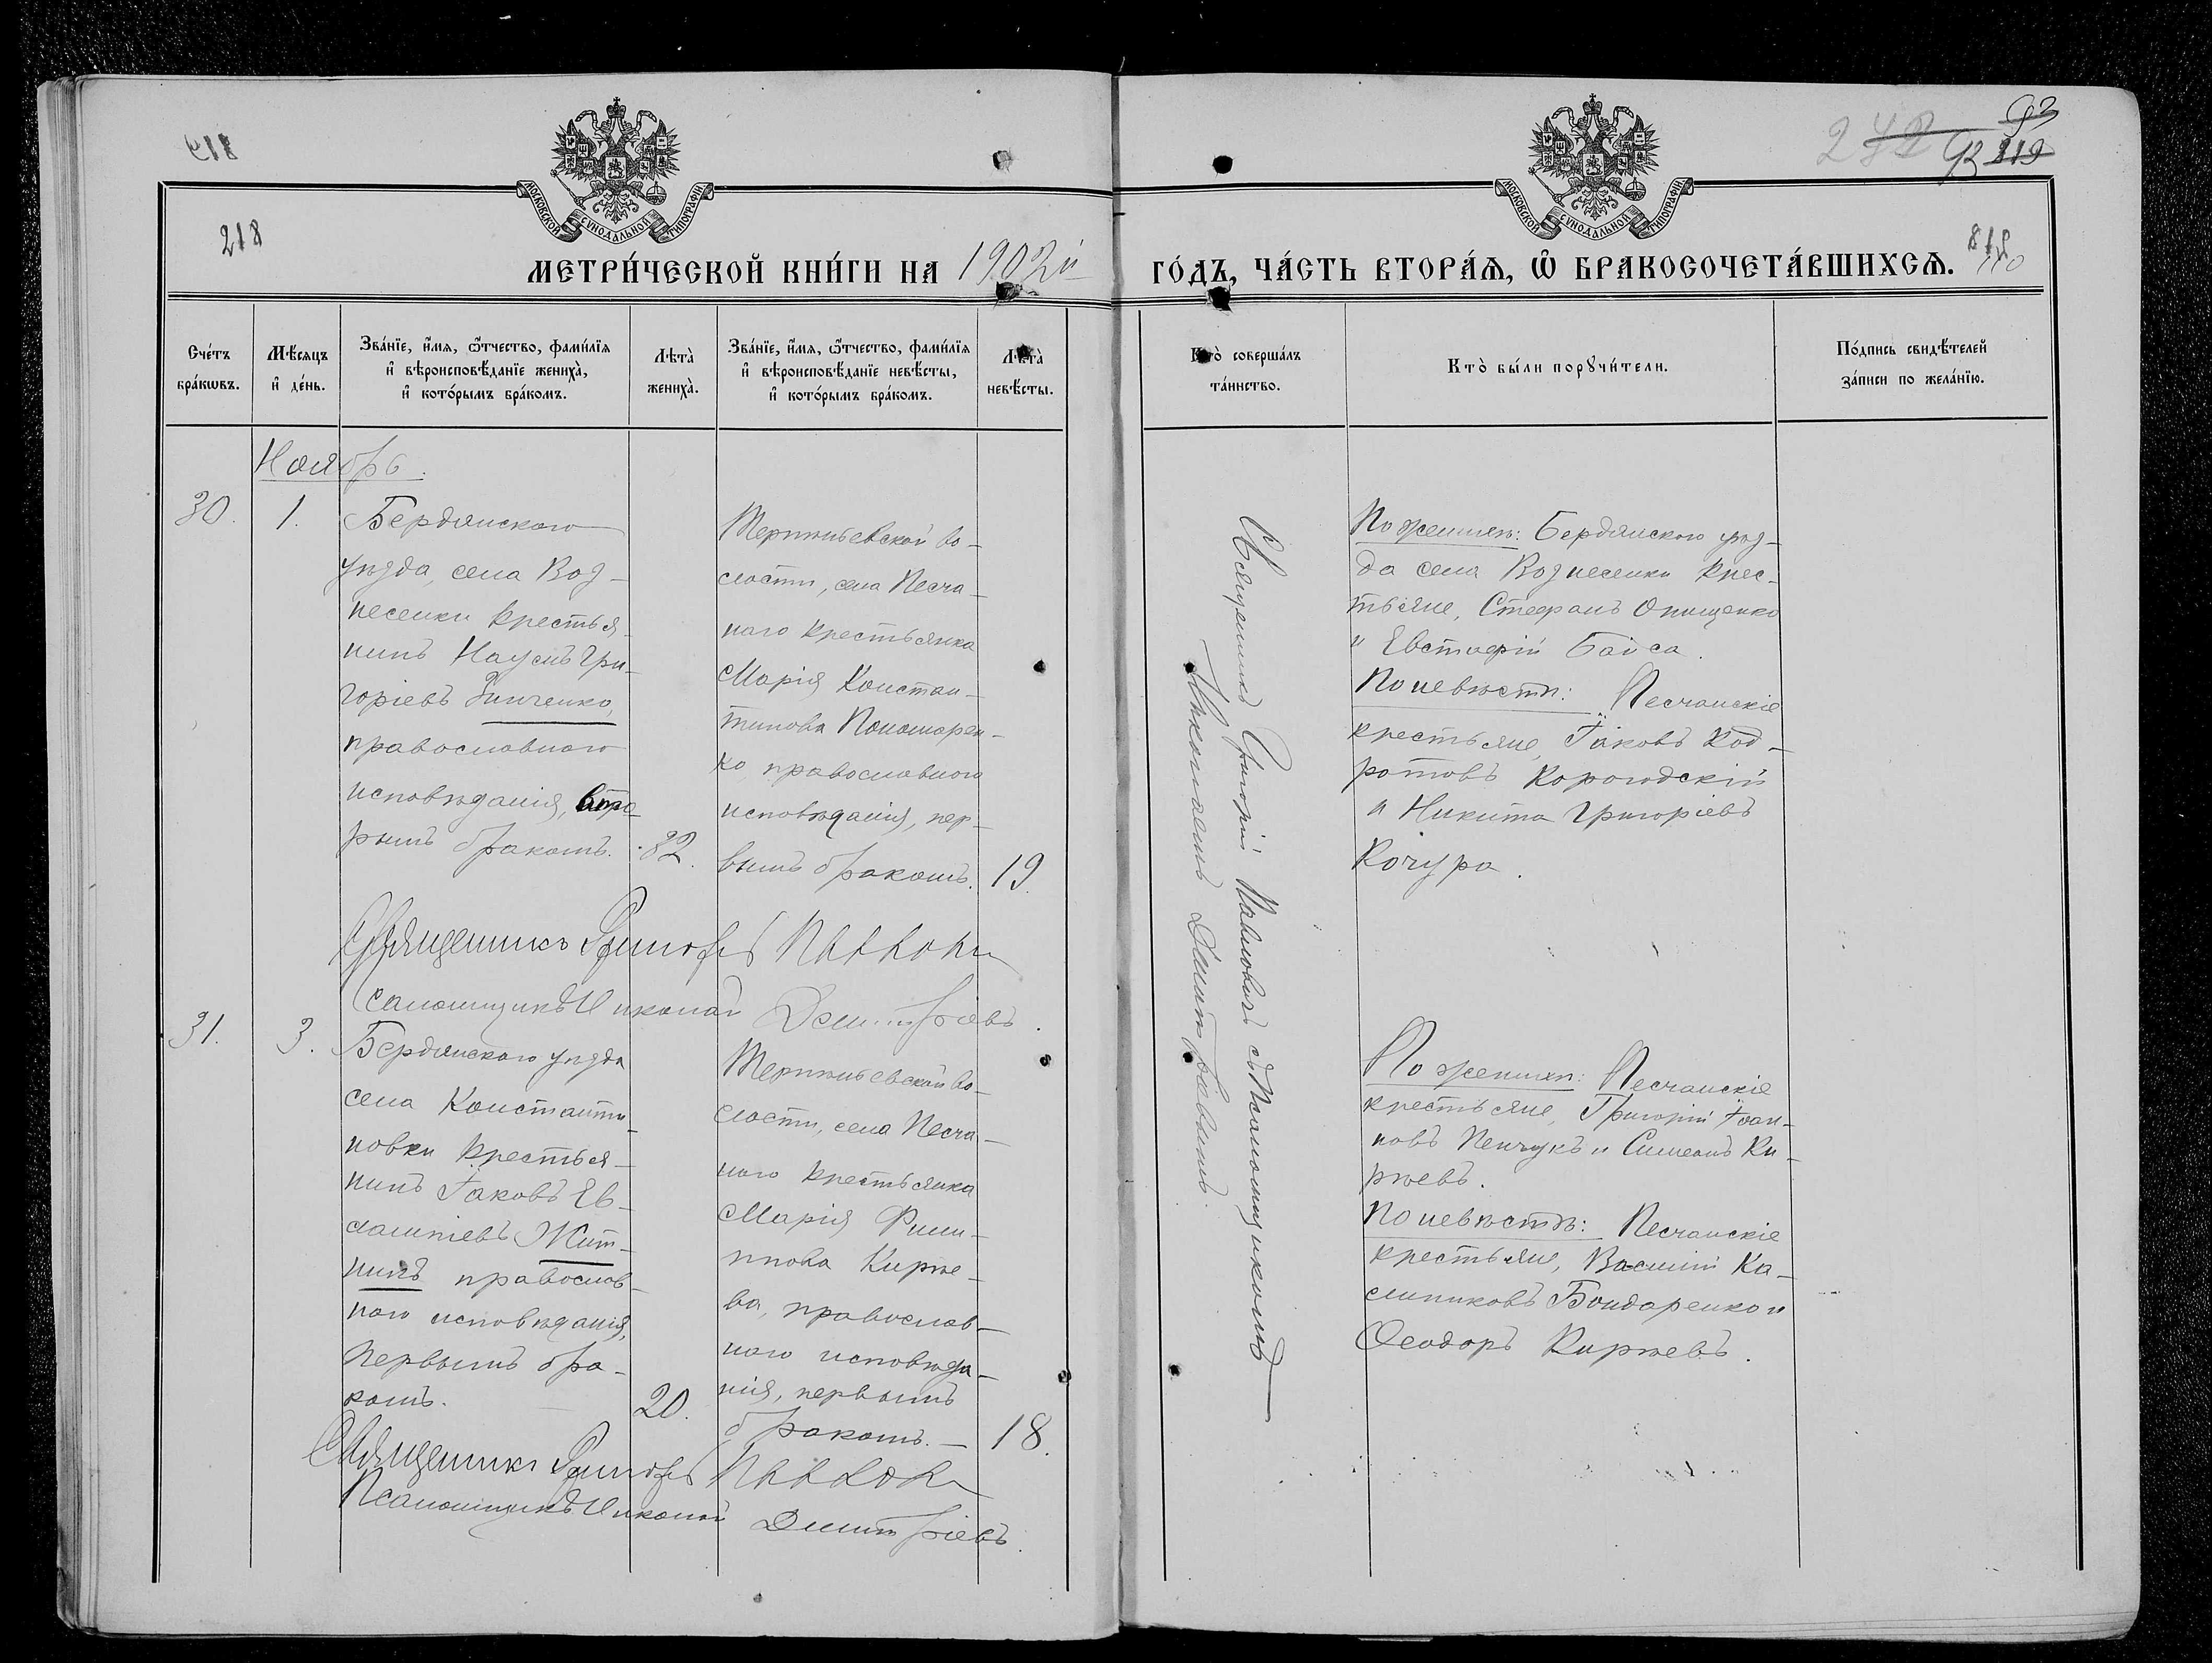 218
МЕТРИ́ЧЕСКОЙ КНИ́ГИ НА 1902й
ГО́ДЪ, ЧА́СТЬ ВТОРА́Я, Ѡ БРАКОСОЧЕТА́ВШИХСЯ.
92
МОСКОВСКОЙ СѴНОДАЛЬНОЙ ТИПОГРАФІИ
МОСКОВСКОЙ СѴНОДАЛЬНОЙ ТИПОГРАФІИ
Сче́тъ
бра́ковъ.
Мѣ́сяцъ
и де́нь.
Зва́нїе, и́мя, ѻ҆́тчество, фами́лїя
и вѣроисповѣ́данїе жениха̀,
и кото́рымъ бра́комъ.
Лѣта̀
жениха̀.
Зва́нїе, и́мя, ѻ҆́тчество, фами́лїя
и вѣроисповѣ́данїе невѣ́сты,
и кото́рымъ бра́комъ.
Лѣта̀
невѣ́сты.
Кто̀ соверша́лъ
та́инство.
Кто̀ бы́ли порꙋчи́тели.
По́дпись свидѣ́телей
за́писи по жела́нїю.
Ноябрь.
30.
1.
Бердянскаго
уѣзда, села Воз-
несенки крестья-
нинъ Наумъ Гри-
горіевъ Зинченко,
православнаго
исповѣданія, вто-
рымъ бракомъ.
32.
Терпѣніевской во-
лости, села Песча-
наго крестьянка
Марія Констан-
тинова Пономарен-
ко, православнаго
исповѣданія, пер-
вымъ бракомъ.
19.
Священникъ Григорій Павловичъ съ Псаломщикомъ
Николаемъ Димитріевымъ.
По женихѣ: Бердянскаго уѣз-
да села Вознесенки крес-
тьяне, Стефанъ Онищенко
и Евстафій Байса.
По невѣстѣ: Песчанскіе
крестьяне, Іаковъ Код-
ратовъ Корогодскій
и Никита Григоріевъ
Кочура.
Священникъ Григорій
Псаломщикъ Николай Димитріевъ.
31.
3.
Бердянскаго уѣзда
села Константи-
новки крестья-
нинъ Іаковъ Ев-
лампіевъ Жит-
нинъ православ-
наго исповѣданія,
первымъ бра-
комъ.
20.
Терпѣніевской во-
лости, села Песча-
наго крестьянка
Марія Фили-
ппова Киріе-
ва, православ-
наго исповѣда-
нія, первымъ
бракомъ.
18.
По женихѣ: Песчанскіе
крестьяне, Григорій Іоан-
новъ Пенчукъ и Симеонъ Ки-
ріевъ.
По невѣстѣ: Песчанскіе
крестьяне, Василій Ка-
линиковъ Бондаренко и
Ѳеодоръ Киріевъ.
Священникъ Григорій
Псаломщикъ Николай Димитріевъ.